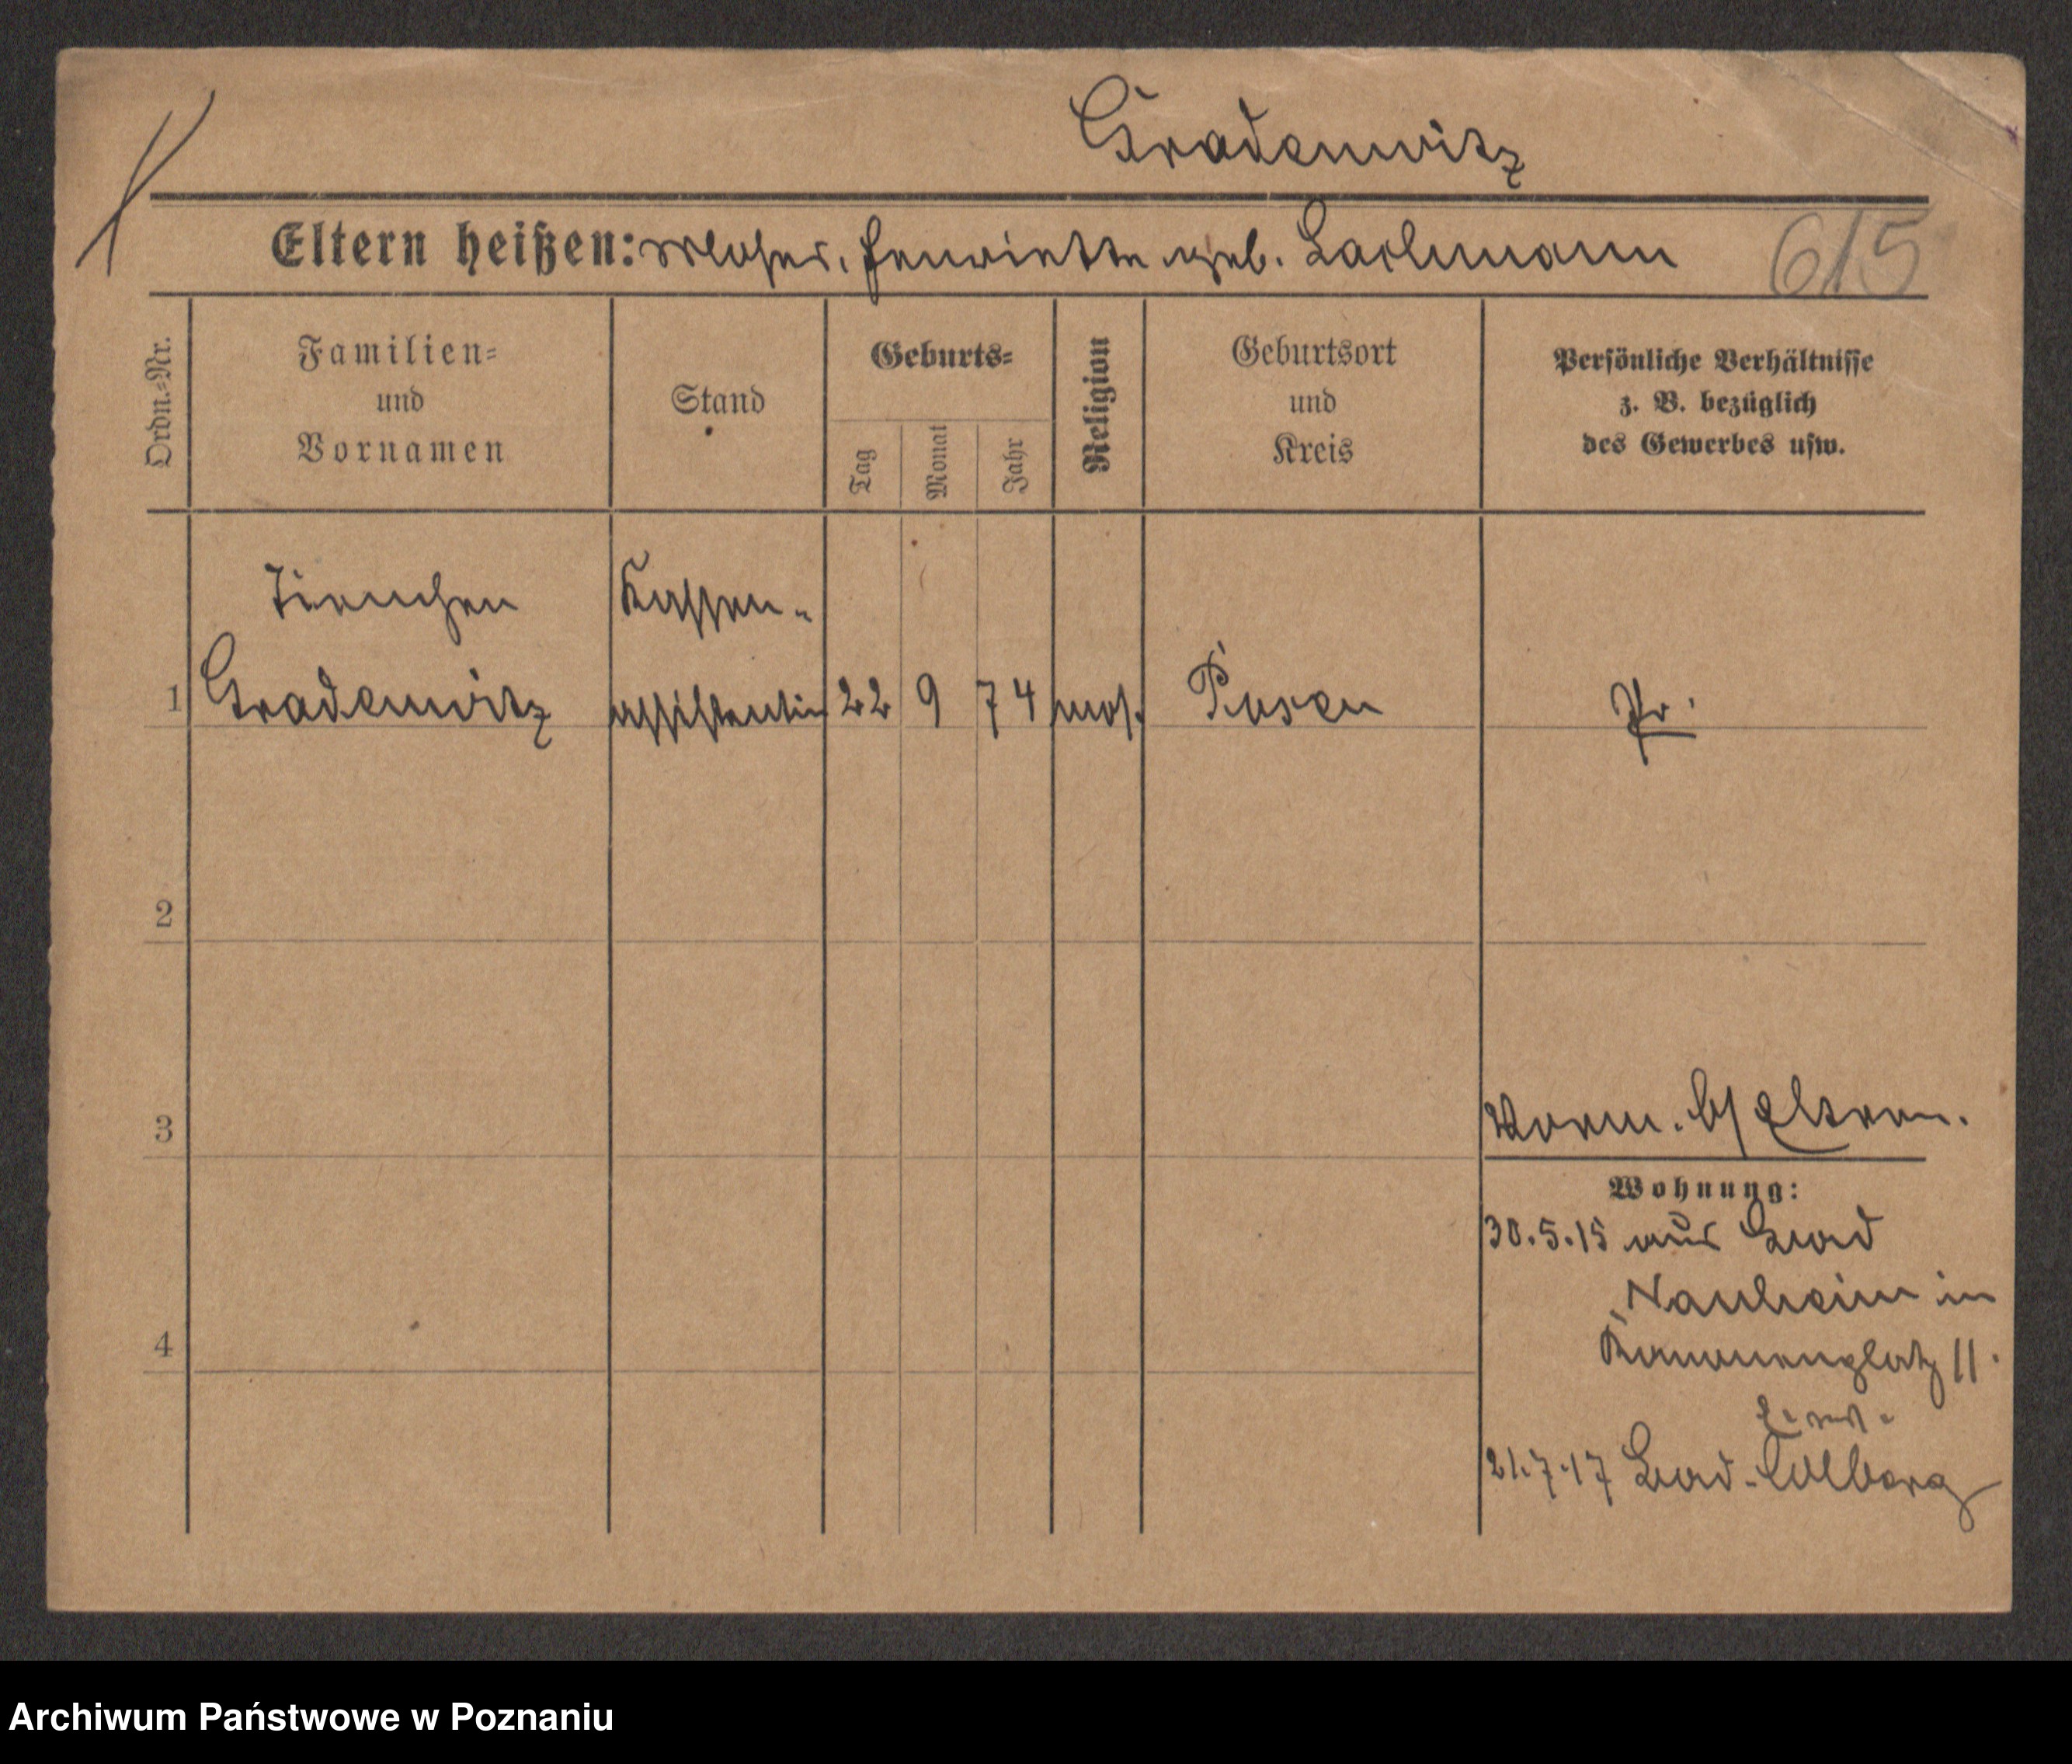 Gradenwitz
Eltern heißen: Moses, Henriette geb. Lachmann
615
Ordn.-Nr.
Familien-
und
Vornamen
Stand
Geburts-
Tag
Monat
Jahr
Religion
Geburtsort
und
Kreis
Persönliche Verhältnisse
z. B. bezüglich
des Gewerbes usw.
Kassen-
1 Gradenwitz assistentin 22 9 74 mos. Posen Pr.
2
3
Vorm. b/ Eltern.
Wohnung:
30.5.15 aus Bad
Nauheim in
4
11.
21.7.17 Bad-Colberg
Archiwum Państwowe w Poznaniu